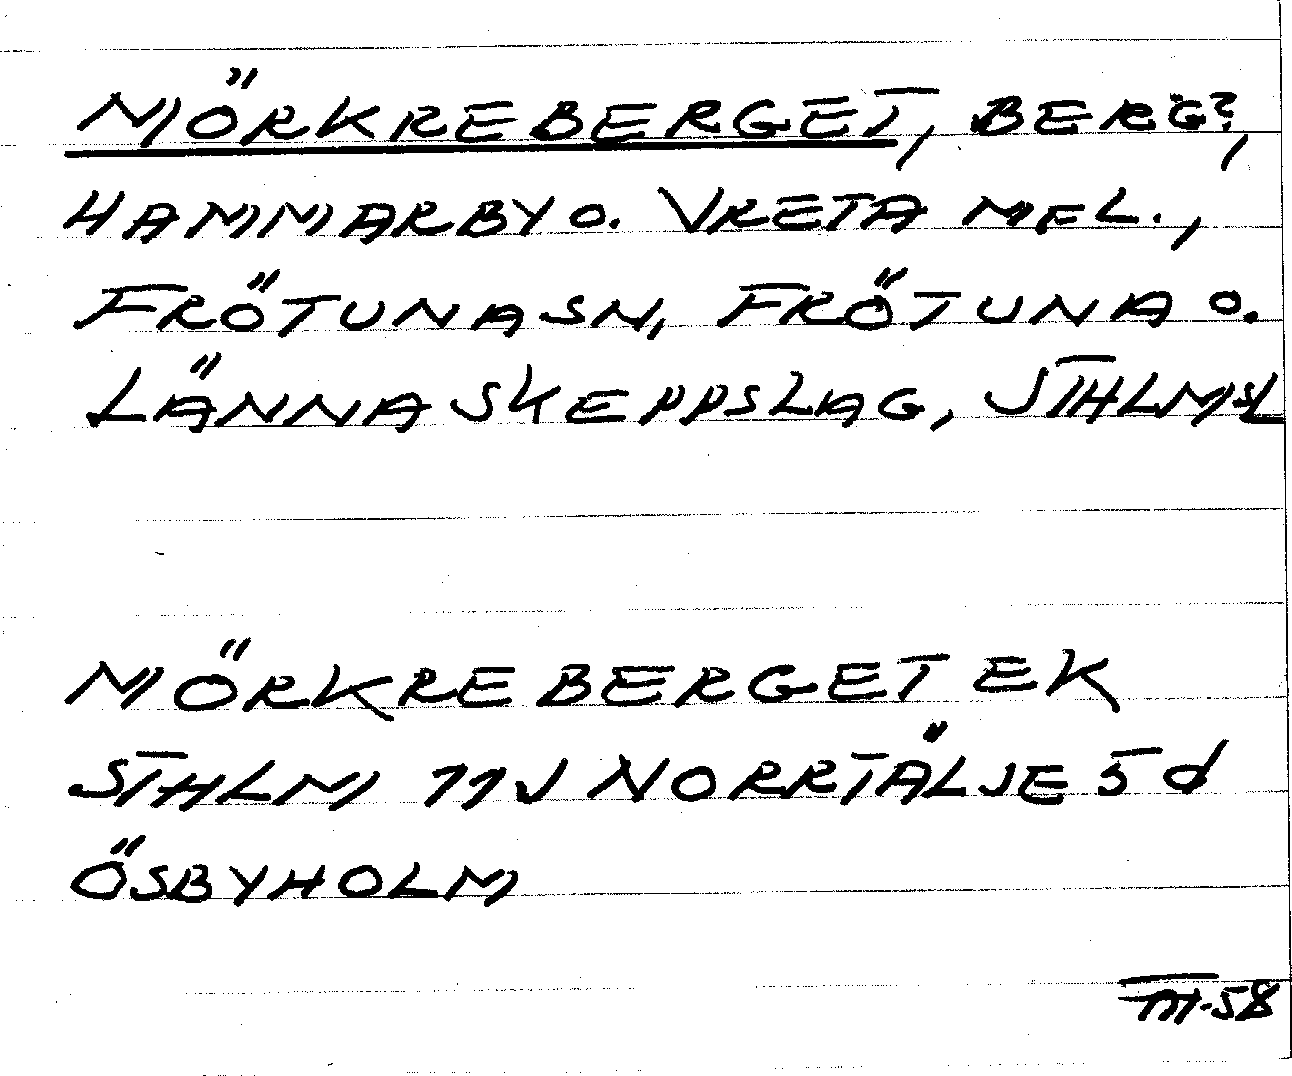 MÖRKREBERGET, BERG?,
HAMMARBY O. VRETA MFL.,
FRÖTUNA SN, FRÖTUNA O.
LÄNNA SKEPPSLAG, STHLMSL
MÖRKREBERGET EK
STHLM 11J NORRTÄLJE 5 d
ÖSBYHOLM
-58